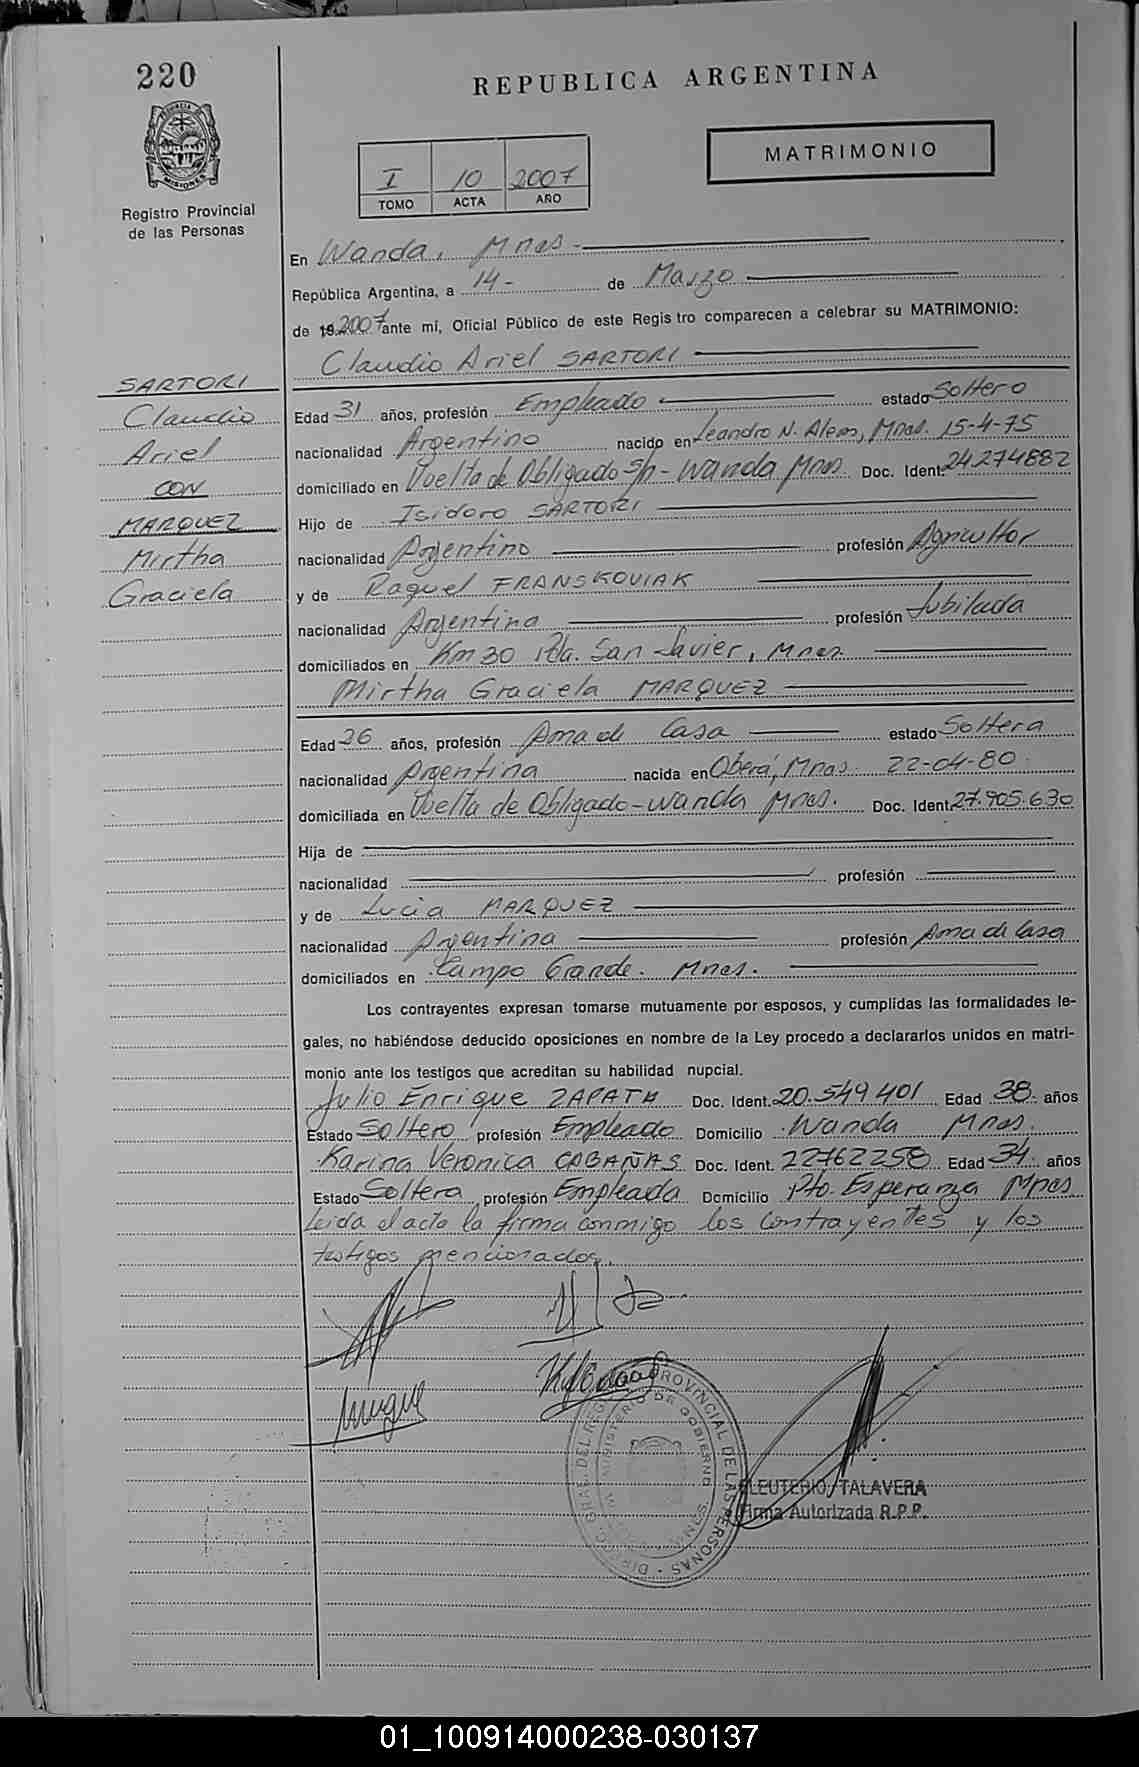 220
REPUBLICA ARGENTINA
PROVINCIA DE MISIONES
Registro Provincial
de las Personas
I 10 2007
TOMO ACTA AÑO
MATRIMONIO
En Wanda, Mnes.-
República Argentina, a 14- de Marzo
de 19 2007 ante mí, Oficial Público de este Registro comparecen a celebrar su MATRIMONIO:
Claudio Ariel SARTORI
SARTORI
Claudio
Ariel
CON
MARQUEZ
Mirtha
Graciela
Edad 31 años, profesión Empleado estado Soltero
nacionalidad Argentino nacido en Leandro N. Alem, Mnes. 15-4-75
domiciliado en Vuelta de Obligado S/n - Wanda Mnes. Doc. Ident. 24.274882
Hijo de Isidoro SARTORI
nacionalidad Argentino profesión Agricultor
y de Raquel FRANSKOVIAK
nacionalidad Argentina profesión Jubilada
domiciliados en Km 30 Pda. San Javier, Mnes.
Mirtha Graciela MARQUEZ
Edad 26 años, profesión Ama de Casa estado Soltera
nacionalidad Argentina nacida en Oberá, Mnes. 22-04-80
domiciliada en Vuelta de Obligado - Wanda Mnes. Doc. Ident. 27.905.630
Hija de
nacionalidad profesión
y de Lucia MARQUEZ
nacionalidad Argentina profesión Ama de Casa
domiciliados en Campo Grande. Mnes.
Los contrayentes expresan tomarse mutuamente por esposos, y cumplidas las formalidades le-
gales, no habiéndose deducido oposiciones en nombre de la Ley procedo a declararlos unidos en matri-
monio ante los testigos que acreditan su habilidad nupcial.
Julio Enrique ZAPATA Doc. Ident. 20.549401 Edad 38 años
Estado Soltero profesión Empleado Domicilio Wanda Mnes.
Karina Veronica CABAÑAS Doc. Ident. 22762258 Edad 34 años
Estado Soltera profesión Empleada Domicilio Pto. Esperanza Mnes
Leida el acta la firma conmigo los contrayentes y los
testigos mencionados.
DIREC. GRAL. DEL REG. PROVINCIAL DE LAS PERSONAS
MINISTERIO DE GOBIERNO
ELEUTERIO TALAVERA
Firma Autorizada R.P.P.
01_100914000238-030137